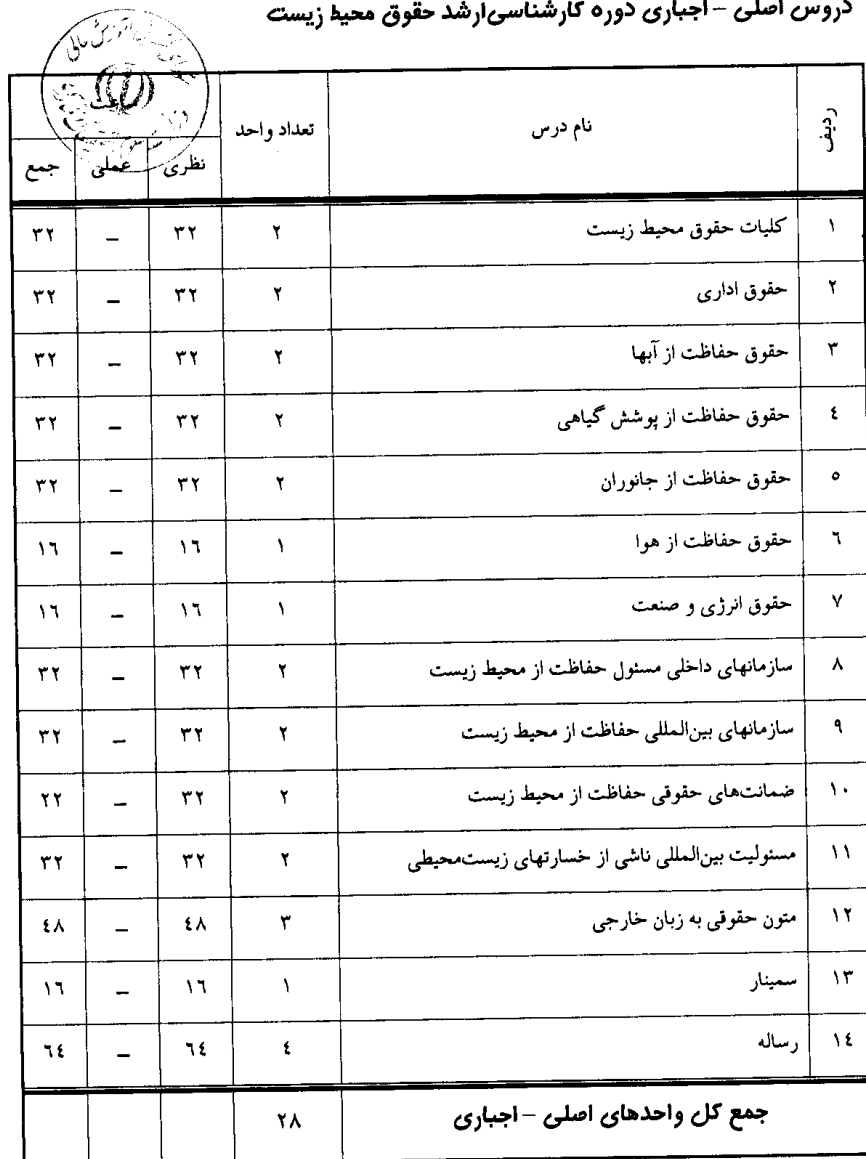 دروس اصلی – اجباری دوره کارشناسی‌ارشد حقوق محیط زیست
ردیف نام درس تعداد واحد ساعت
نظری عملی جمع
۱ کلیات حقوق محیط زیست ۲ ۳۲ – ۳۲
۲ حقوق اداری ۲ ۳۲ – ۳۲
۳ حقوق حفاظت از آبها ۲ ۳۲ – ۳۲
٤ حقوق حفاظت از پوشش گیاهی ۲ ۳۲ – ۳۲
٥ حقوق حفاظت از جانوران ۲ ۳۲ – ۳۲
٦ حقوق حفاظت از هوا ۱ ۱٦ – ۱٦
۷ حقوق انرژی و صنعت ۱ ۱٦ – ۱٦
۸ سازمانهای داخلی مسئول حفاظت از محیط زیست ۲ ۳۲ – ۳۲
۹ سازمانهای بین‌المللی حفاظت از محیط زیست ۲ ۳۲ – ۳۲
۱۰ ضمانت‌های حقوقی حفاظت از محیط زیست ۲ ۳۲ – ۲۲
۱۱ مسئولیت بین‌المللی ناشی از خسارتهای زیست‌محیطی ۲ ۳۲ – ۳۲
۱۲ متون حقوقی به زبان خارجی ۳ ٤۸ – ٤۸
۱۳ سمینار ۱ ۱٦ – ۱٦
۱٤ رساله ٤ ٦٤ – ٦٤
جمع کل واحدهای اصلی – اجباری ۲۸